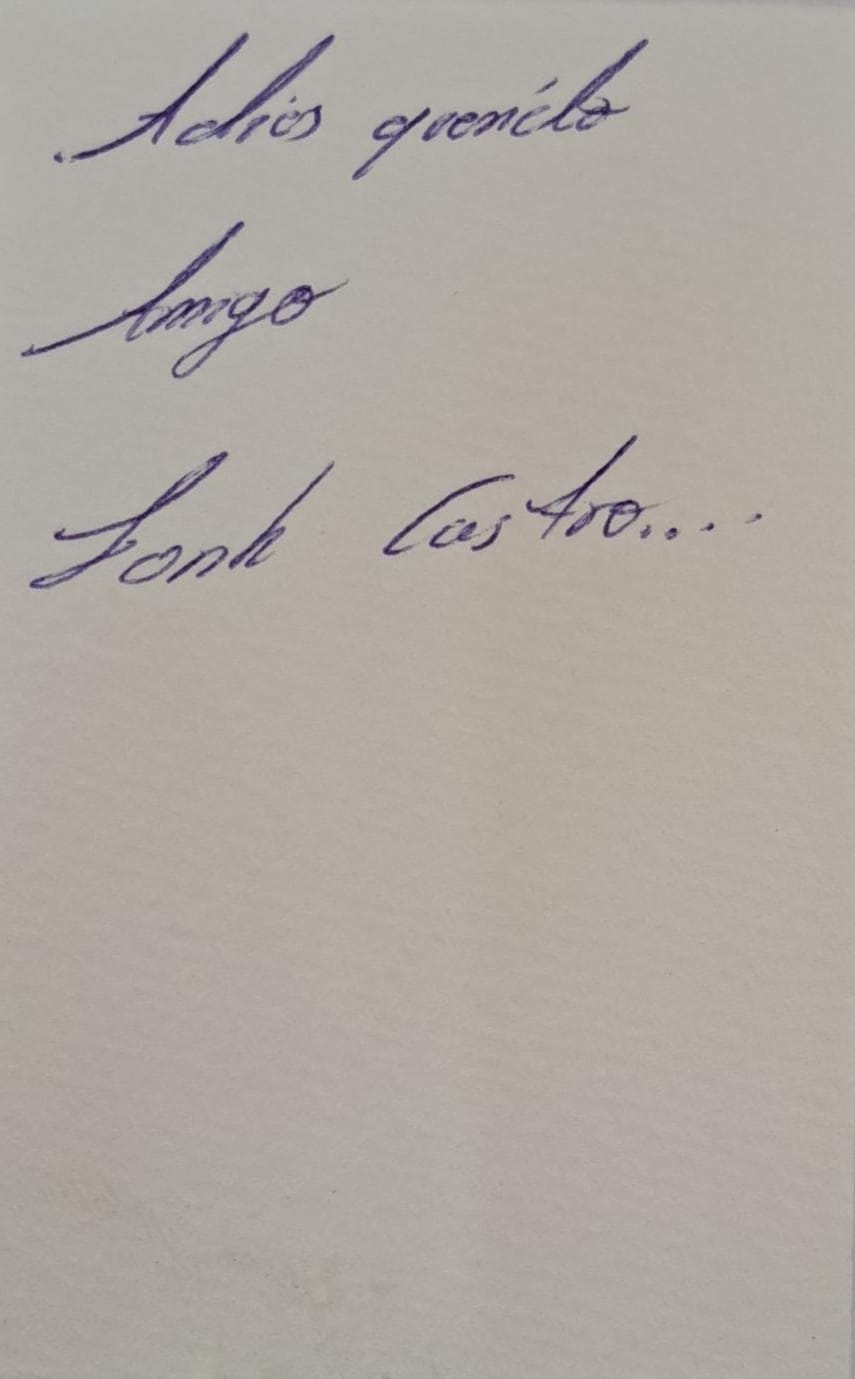 Adios querido
Amigo
Fonk Castro....